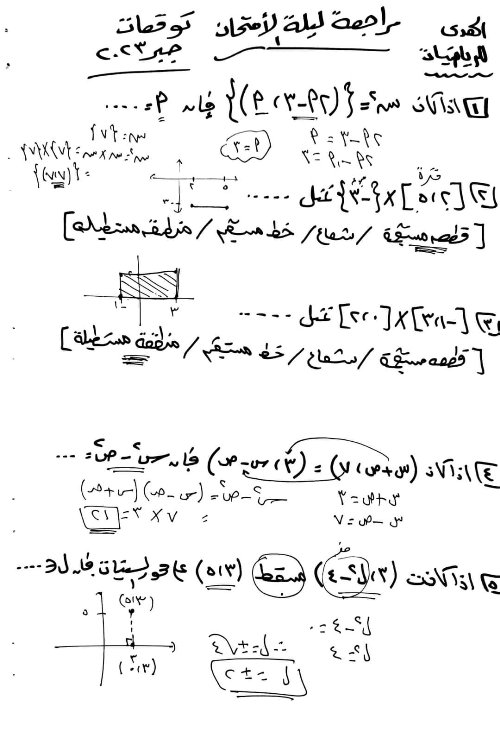 الهدى
للرياضيات
مراجعة ليلة الامتحان
توقعات
جبر ٢٠٢٣
١] اذا كان س² = {(٢م - ٣ ، م)} فإن م = ....
س = {٧}
س² = س × س = {٧} × {٧}
= {(٧،٧)}
م = ٣
٢م - ٣ = م
٢م - م = ٣
فترة
٢] [٢ ، ٥] × {-٣} تمثل .....
[قطعة مستقيمة / شعاع / خط مستقيم / منطقة مستطيلة]
٢ ٥
-٣
٣] [-١ ، ٣] × [٠ ، ٢] تمثل .....
-١ ٣
[قطعة مستقيمة / شعاع / خط مستقيم / منطقة مستطيلة]
٤] اذا كان (س + ص ، ٧) = (٣ ، س - ص) فإن س² - ص² = ...
س + ص = ٣
س - ص = ٧
س² - ص² = (س - ص) (س + ص)
= ٧ × ٣ = ٢١
صفر
٥] اذا كانت (٣ ، ل² - ٤) مسقط (٣ ، ٥) على محور السينات فإن ل = ....
ل² - ٤ = ٠
ل² = ٤
∴ ل = ± √٤
ل = ± ٢
(٣ ، ٥)
٥
٣
(٣ ، ٠)